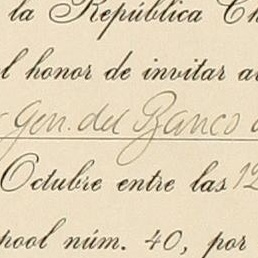 la República Ch
l honor de invitar a
Gen. del Banco
Octubre entre las 12
pool núm. 40, por